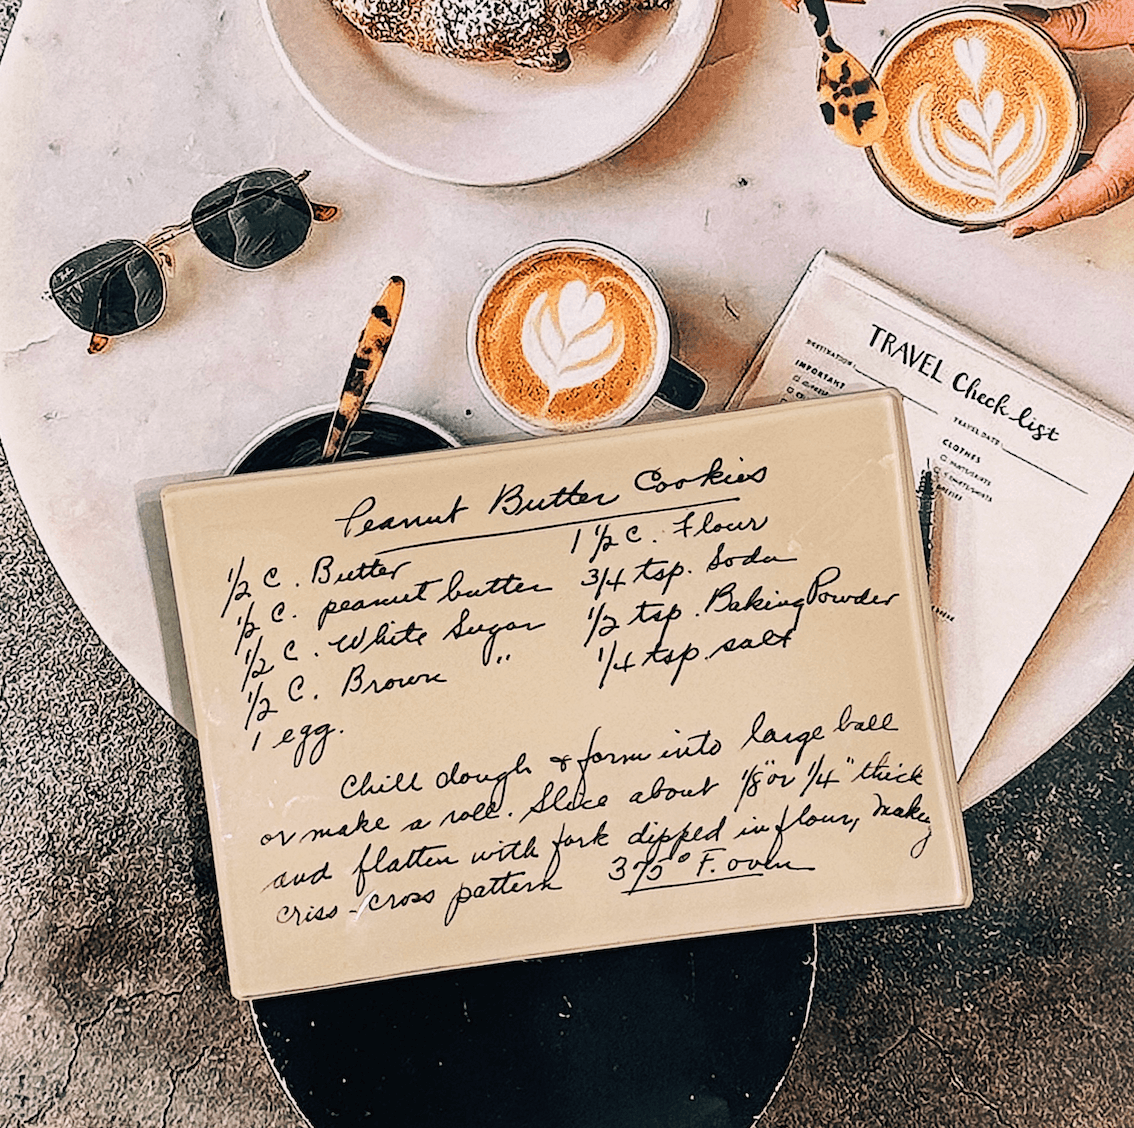 TRAVEL Check list
DESTINATION:
TRAVEL DATE:
IMPORTANT
CLOTHES
Peanut Butter Cookies
1/2 C. Butter
1/2 C. peanut butter
1/2 C. White Sugar
1/2 C. Brown "
1 egg.
1 1/2 C. Flour
3/4 tsp. Soda
1/2 tsp. Baking Powder
1/4 tsp. salt
Chill dough & form into large ball
or make a roll. Slice about 1/8" or 1/4" thick
and flatten with fork dipped in flour, making
criss-cross pattern 375° F. oven